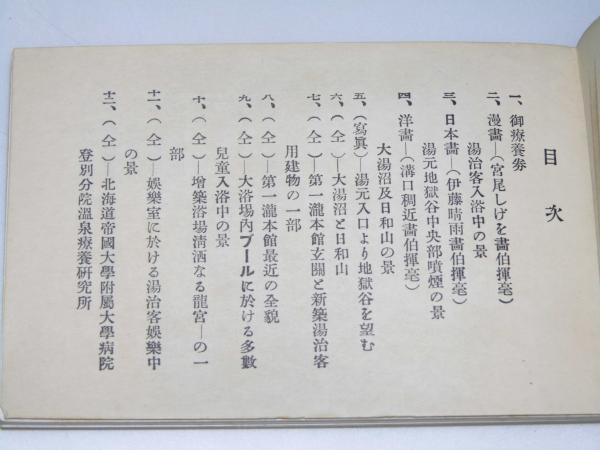 目次
一、御療養券
二、漫畵―(宮尾しげを畵伯揮毫)
湯治客入浴中の景
三、日本畵―(伊藤晴雨畵伯揮毫)
湯元地獄谷中央部噴煙の景
四、洋畵―(溝口稠近畵伯揮毫)
大湯沼及日和山の景
五、(寫眞)―湯元入口より地獄谷を望む
六、(仝)―大湯沼と日和山
七、(仝)―第一瀧本館玄關と新築湯治客
用建物の一部
八、(仝)―第一瀧本館最近の全貌
九、(仝)―大浴場內プールに於ける多數
兒童入浴中の景
十、(仝)―增築浴場淸洒なる龍宮―の一
部
十一、(仝)―娛樂室に於ける湯治客娛樂中
の景
十二、(仝)―北海道帝國大學附屬大學病院
登別分院溫泉療養硏究所